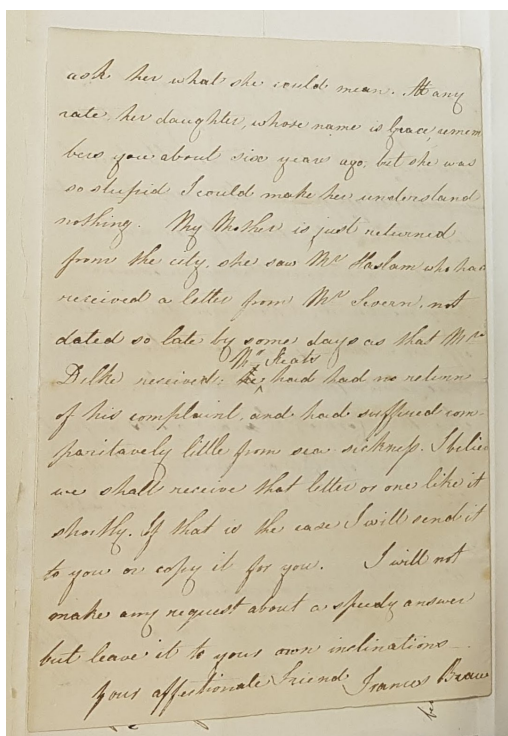 ask her what she could mean. At any
rate, her daughter, whose name is Grace, remem
bers you about six year ago, but she was
so stupid I could make her understand
nothing. My Mother is just returned
from the city, she saw Mr Haslam who had
received a letter from Mr Severn, not
dated so late by some days as that Mrs
Mr Keats
Dilke received; he had had no return
of his complaint, and had suffered com-
paritavely little from sea sickness. I believe
we shall receive that letter or one like it
shortly. If that is the case I will send it
to you or copy it for you. I will not
make any request about a speedy answer
but leave it to your own inclinations—.
Your affectionate Friend Frances Brawne